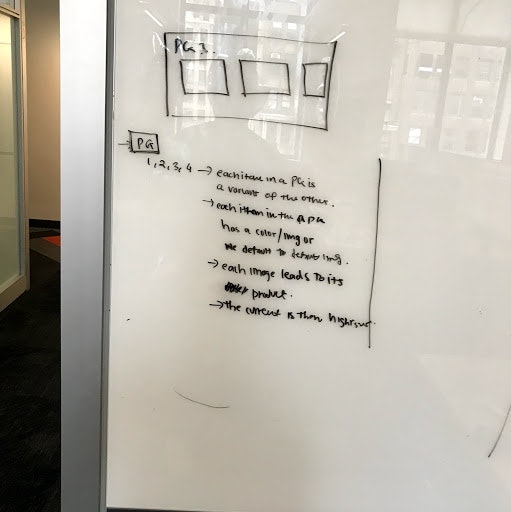 PG 3.
PG
1, 2, 3, 4 → each item in a PG is
a variant of the other.
→ each item in the PG
has a color/img or
we default to default img.
→ each image leads to its
product.
→ the current is then